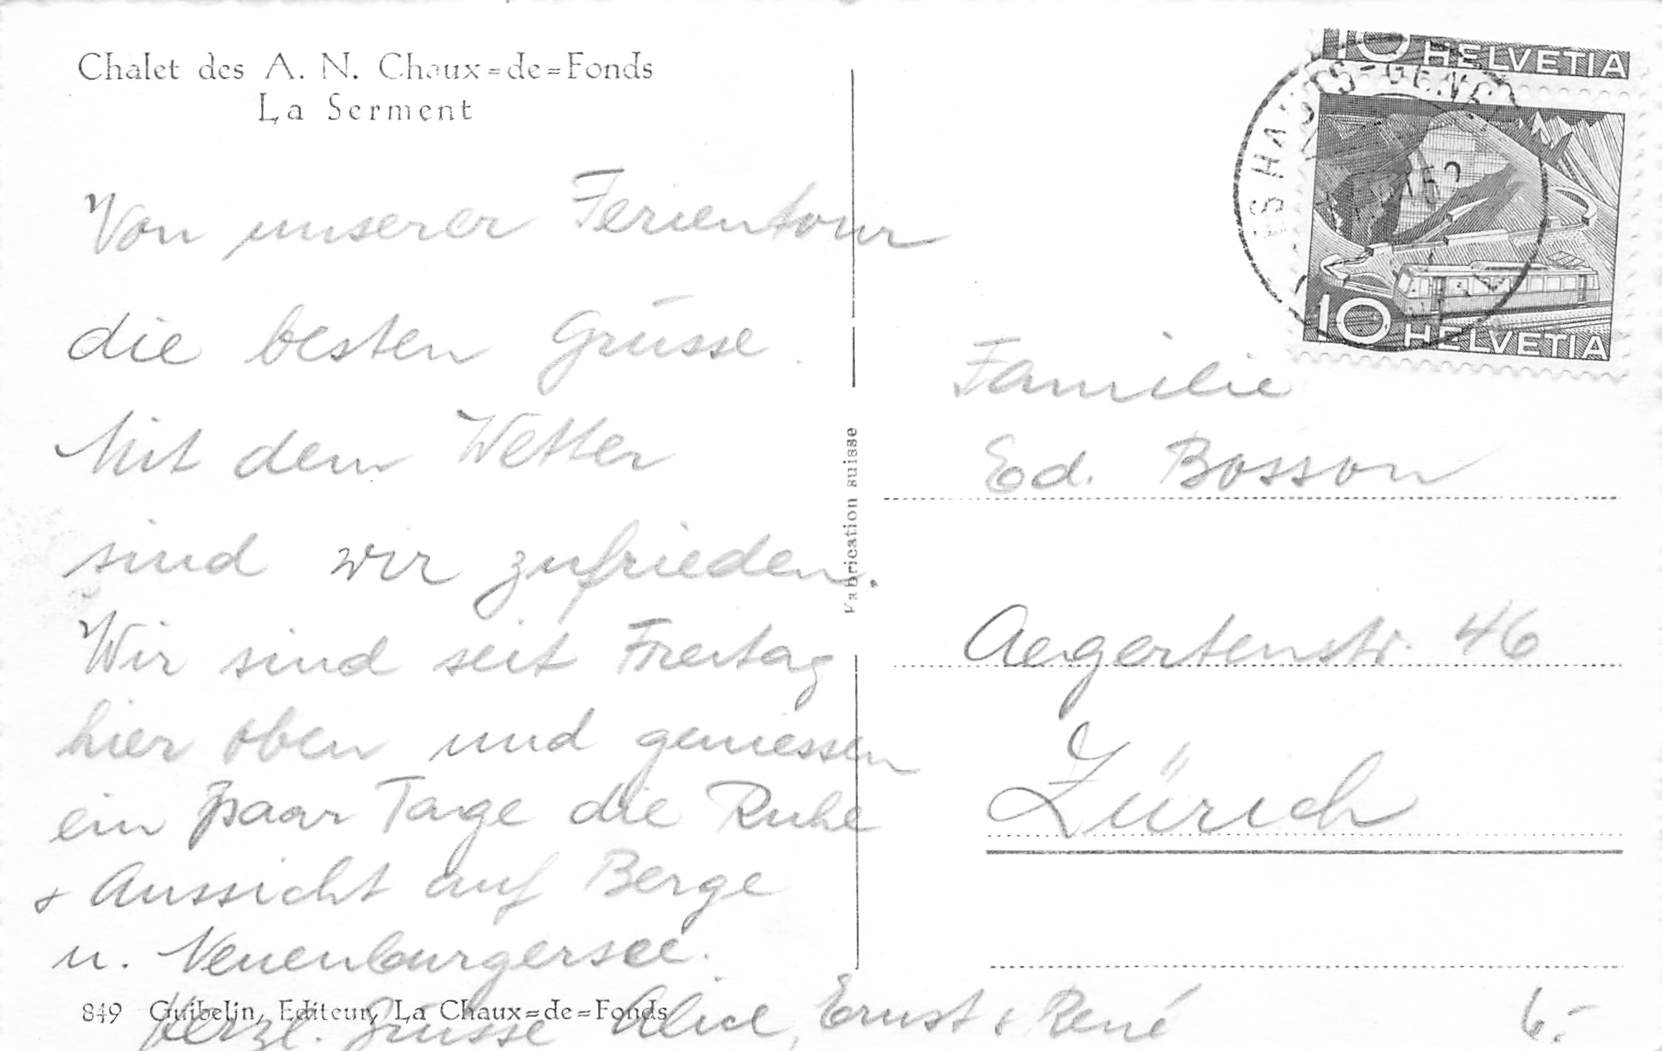 Chalet des A. N. Chaux=de=Fonds
La Serment
Von unserer Ferientour
die besten Grüsse.
Mit dem Wetter
sind wir zufrieden.
Wir sind seit Freitag
hier oben und geniessen
ein paar Tage die Ruhe
+ Aussicht auf Berge
u. Neuenburgersee.
Herzl. Grüsse Alice, Ernst & René
849 Guibelin, Editeur, La Chaux=de=Fonds
Fabrication suisse
10 HELVETIA
10 HELVETIA
Familie
Ed. Bosson
Aegertenstr. 46
Zürich
6.-